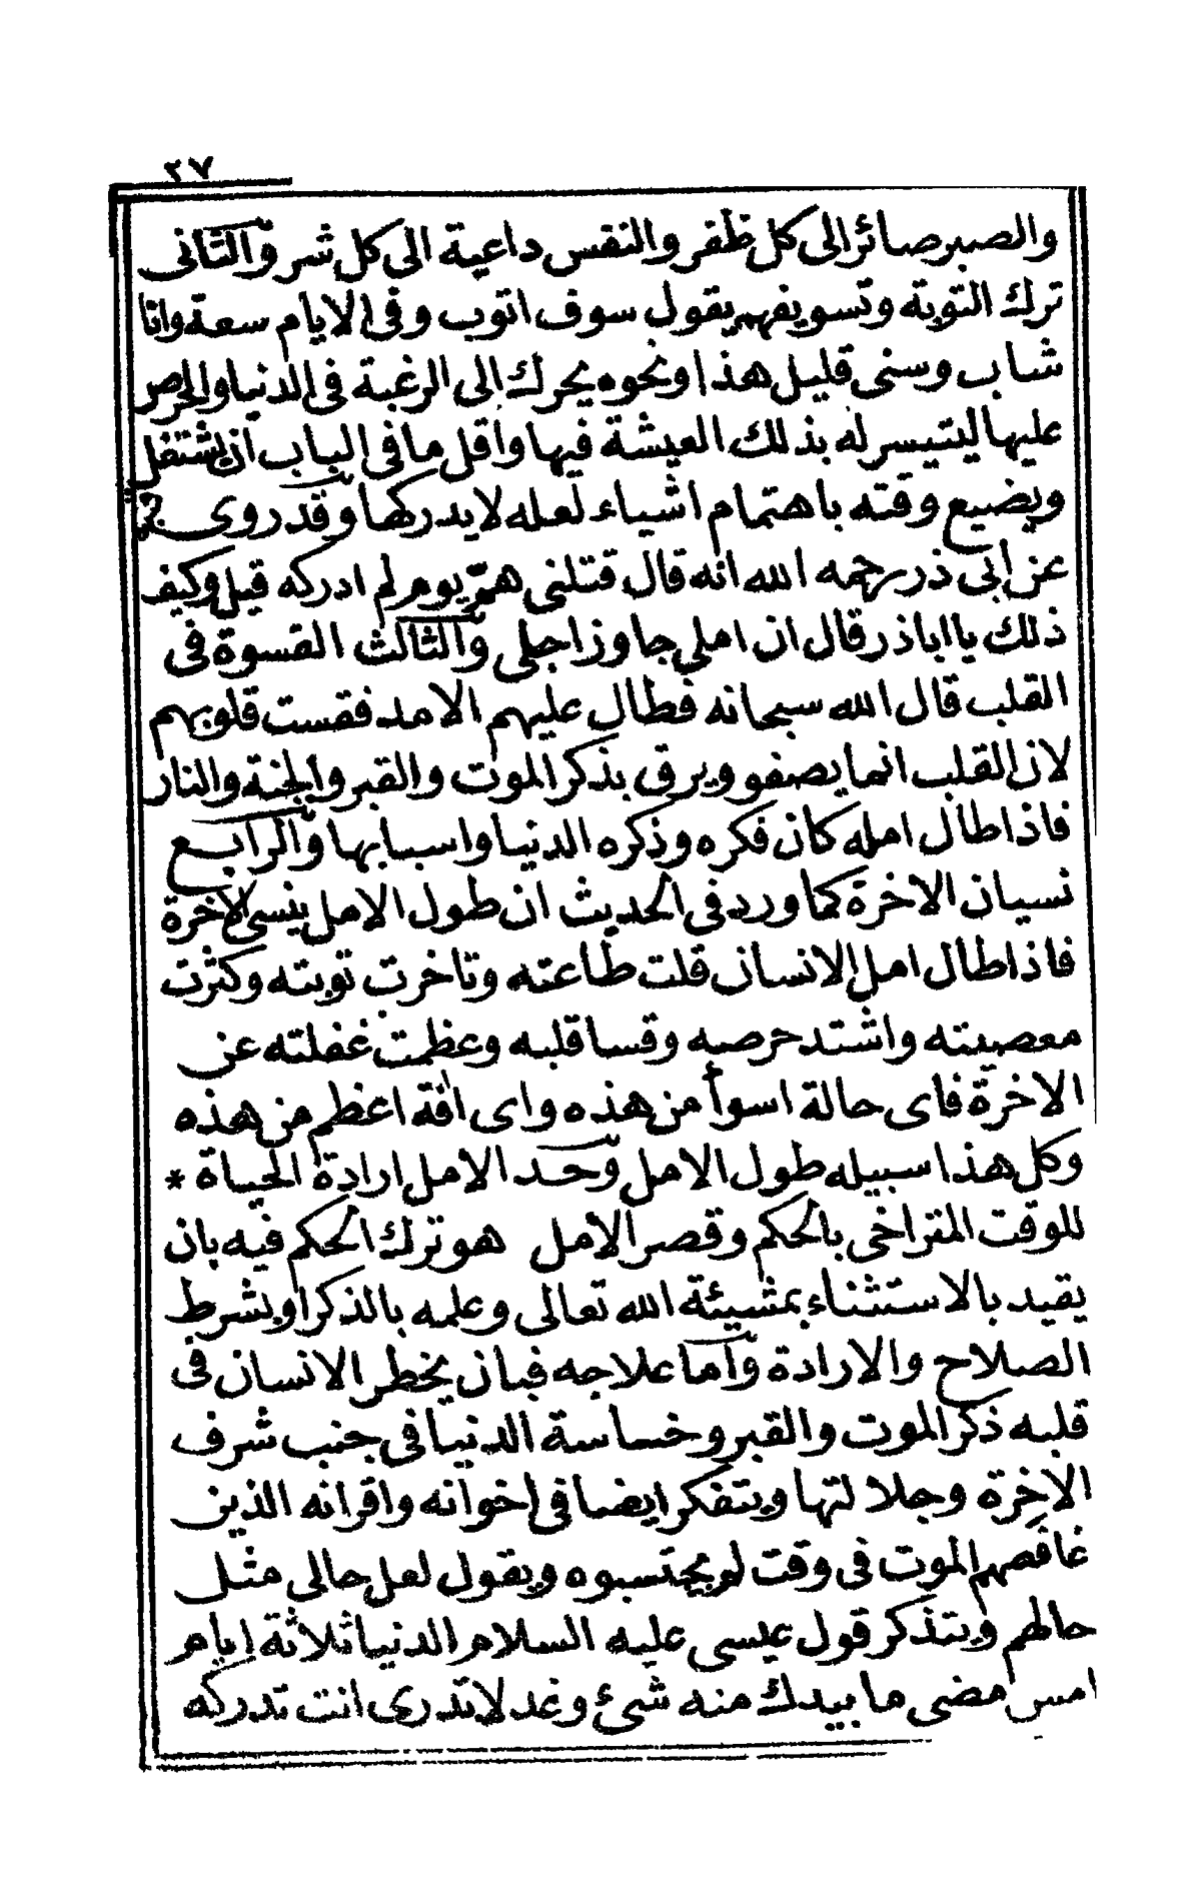 ٢٧
والصبر صائر الى كل ظفر والنفس داعية الى كل شر والثانى
ترك التوبة وتسويفهم يقول سوف اتوب وفى الايام سعة وانا
شاب وسنى قليل هذا ونحوه يحرك الى الرغبة فى الدنيا والحرص
عليها ليتيسر له بذلك العيشة فيها واقل ما فى الباب ان يشتغل
ويضيع وقته باهتمام اشياء لعله لا يدركها وقد روى
عن ابى ذر رحمه الله انه قال قتلنى هم يوم لم ادركه قيل وكيف
ذلك يا ابا ذر قال ان املى جاوز اجلى والثالث القسوة فى
القلب قال الله سبحانه فطال عليهم الامد فقست قلوبهم
لان القلب انما يصفو ويرق بذكر الموت والقبر والجنة والنار
فاذا طال امله كان فكره وذكره الدنيا واسبابها والرابع
نسيان الاخرة كما ورد فى الحديث ان طول الامل ينسى الاخرة
فاذا طال امل الانسان قلت طاعته وتاخرت توبته وكثرت
معصيته واشتد حرصه وقسا قلبه وعظمت غفلته عن
الاخرة فاى حالة اسوأ من هذه واى افة اعظم من هذه
وكل هذا سبيله طول الامل وحد الامل ارادة الحياة *
للوقت المتراخى بالحكم وقصر الأمل هو ترك الحكم فيه بان
يقيد بالاستثناء بمشيئة الله تعالى وعلمه بالذكر او بشرط
الصلاح والارادة وأما علاجه فبان يخطر الانسان فى
قلبه ذكر الموت والقبر وخساسة الدنيا فى جنب شرف
الاخرة وجلالتها ويتفكر ايضا فى اخوانه واقرانه الذين
غافصهم الموت فى وقت لم يحتسبوه ويقول لعل حالى مثل
حالهم ويتذكر قول عيسى عليه السلام الدنيا ثلاثة ايام
امس مضى ما بيدك منه شئ وغد لا تدرى انت تدركه